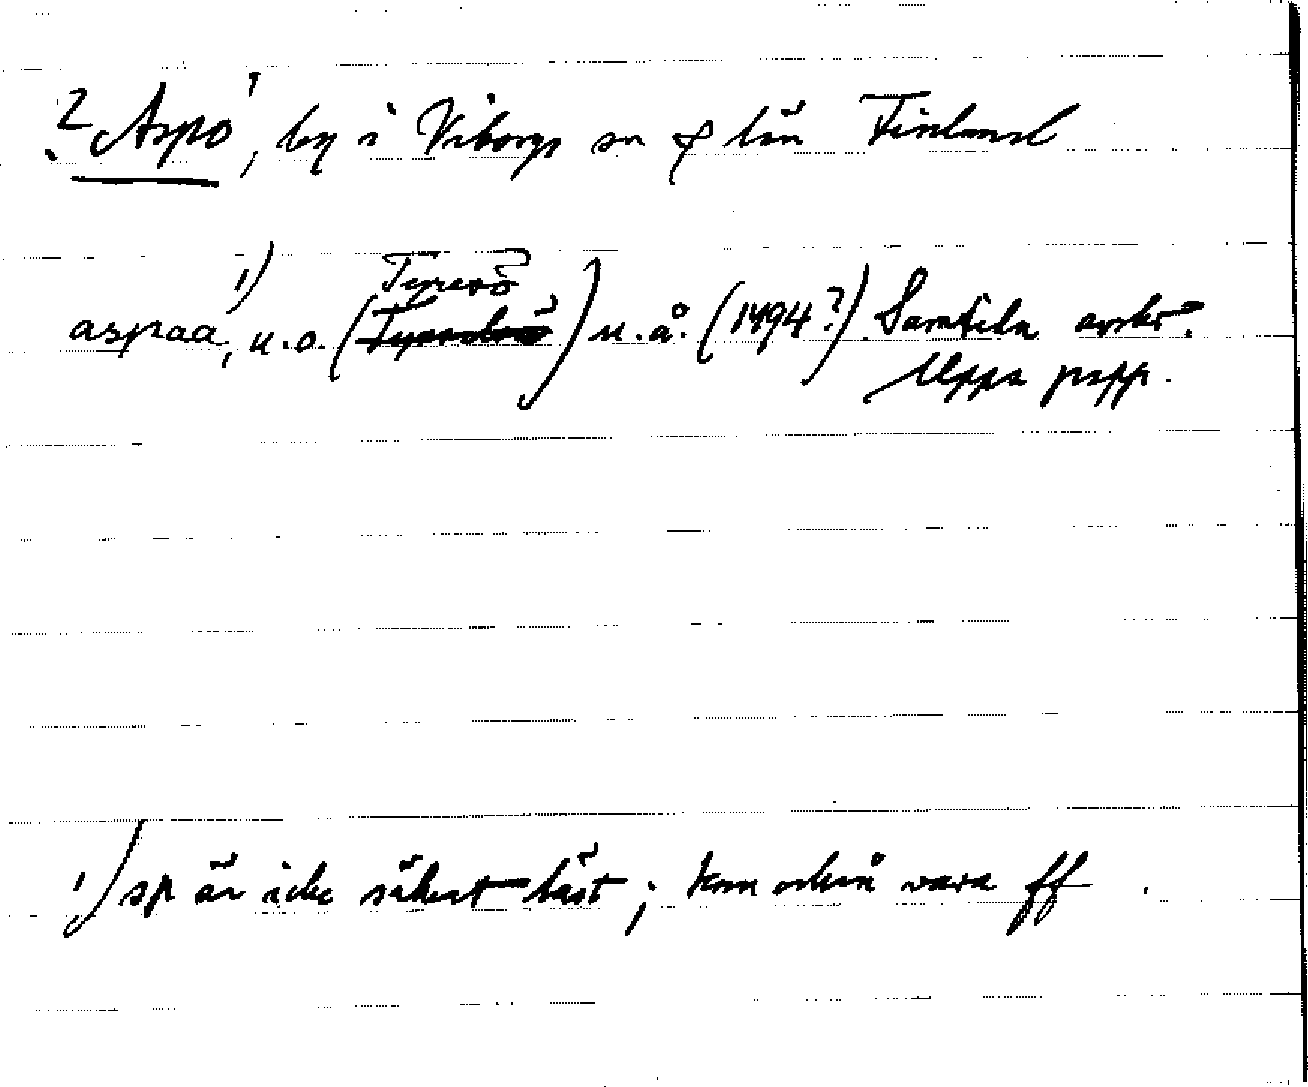 ? Aspö, by i Viborgs sn & län Finland
aspaa, 1) u.o. (Tyrvö) u.å. (1494?) Samtida avskr.
Uppa papp.
1) sp är icke säkert läst; kan också vara ff